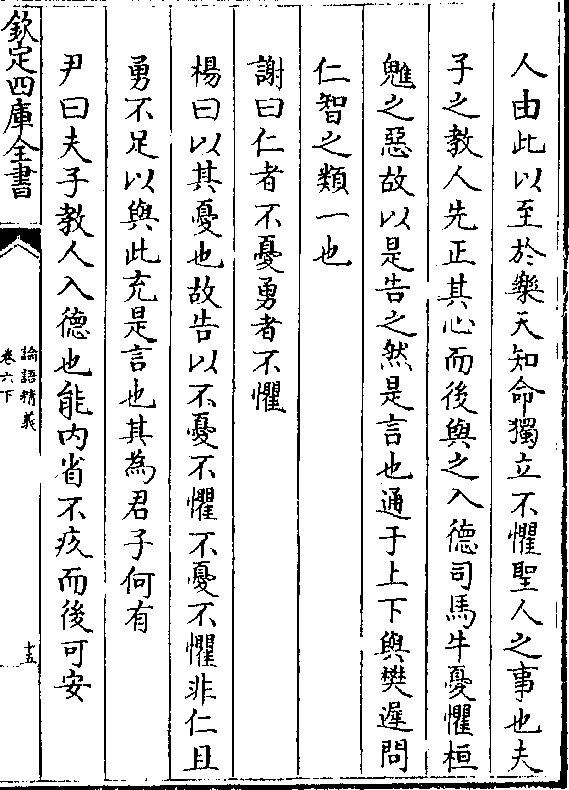 人由此以至於樂天知命獨立不懼聖人之事也夫
子之教人先正其心而後與之入德司馬牛憂懼桓
魋之惡故以是告之然是言也通于上下與樊遲問
仁智之類一也
謝曰仁者不憂勇者不懼
楊曰以其憂也故告以不憂不懼不憂不懼非仁且
勇不足以與此充是言也其為君子何有
尹曰夫子教人入德也能内省不疚而後可安
欽定四庫全書
論語精義
卷六下
十五